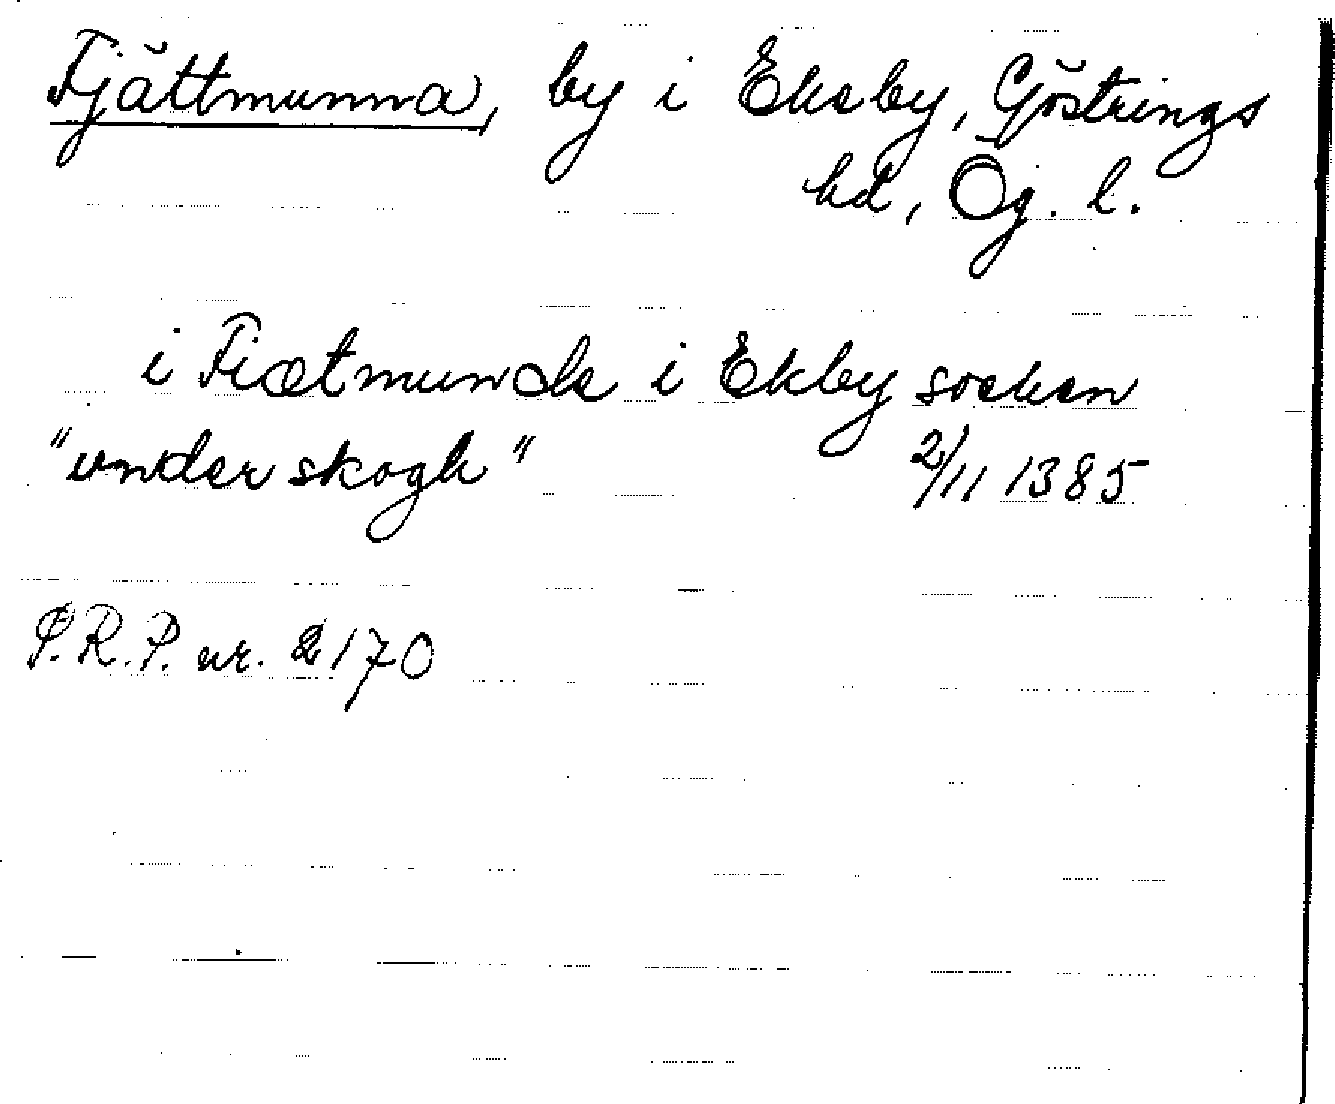 Fjättmunna, by i Eksby, Göstrings
hd, Ög. l.
i Fiætmunde i Ekby socken
"vnder skogh" 2/11 1385
P.R.P. nr. 2170